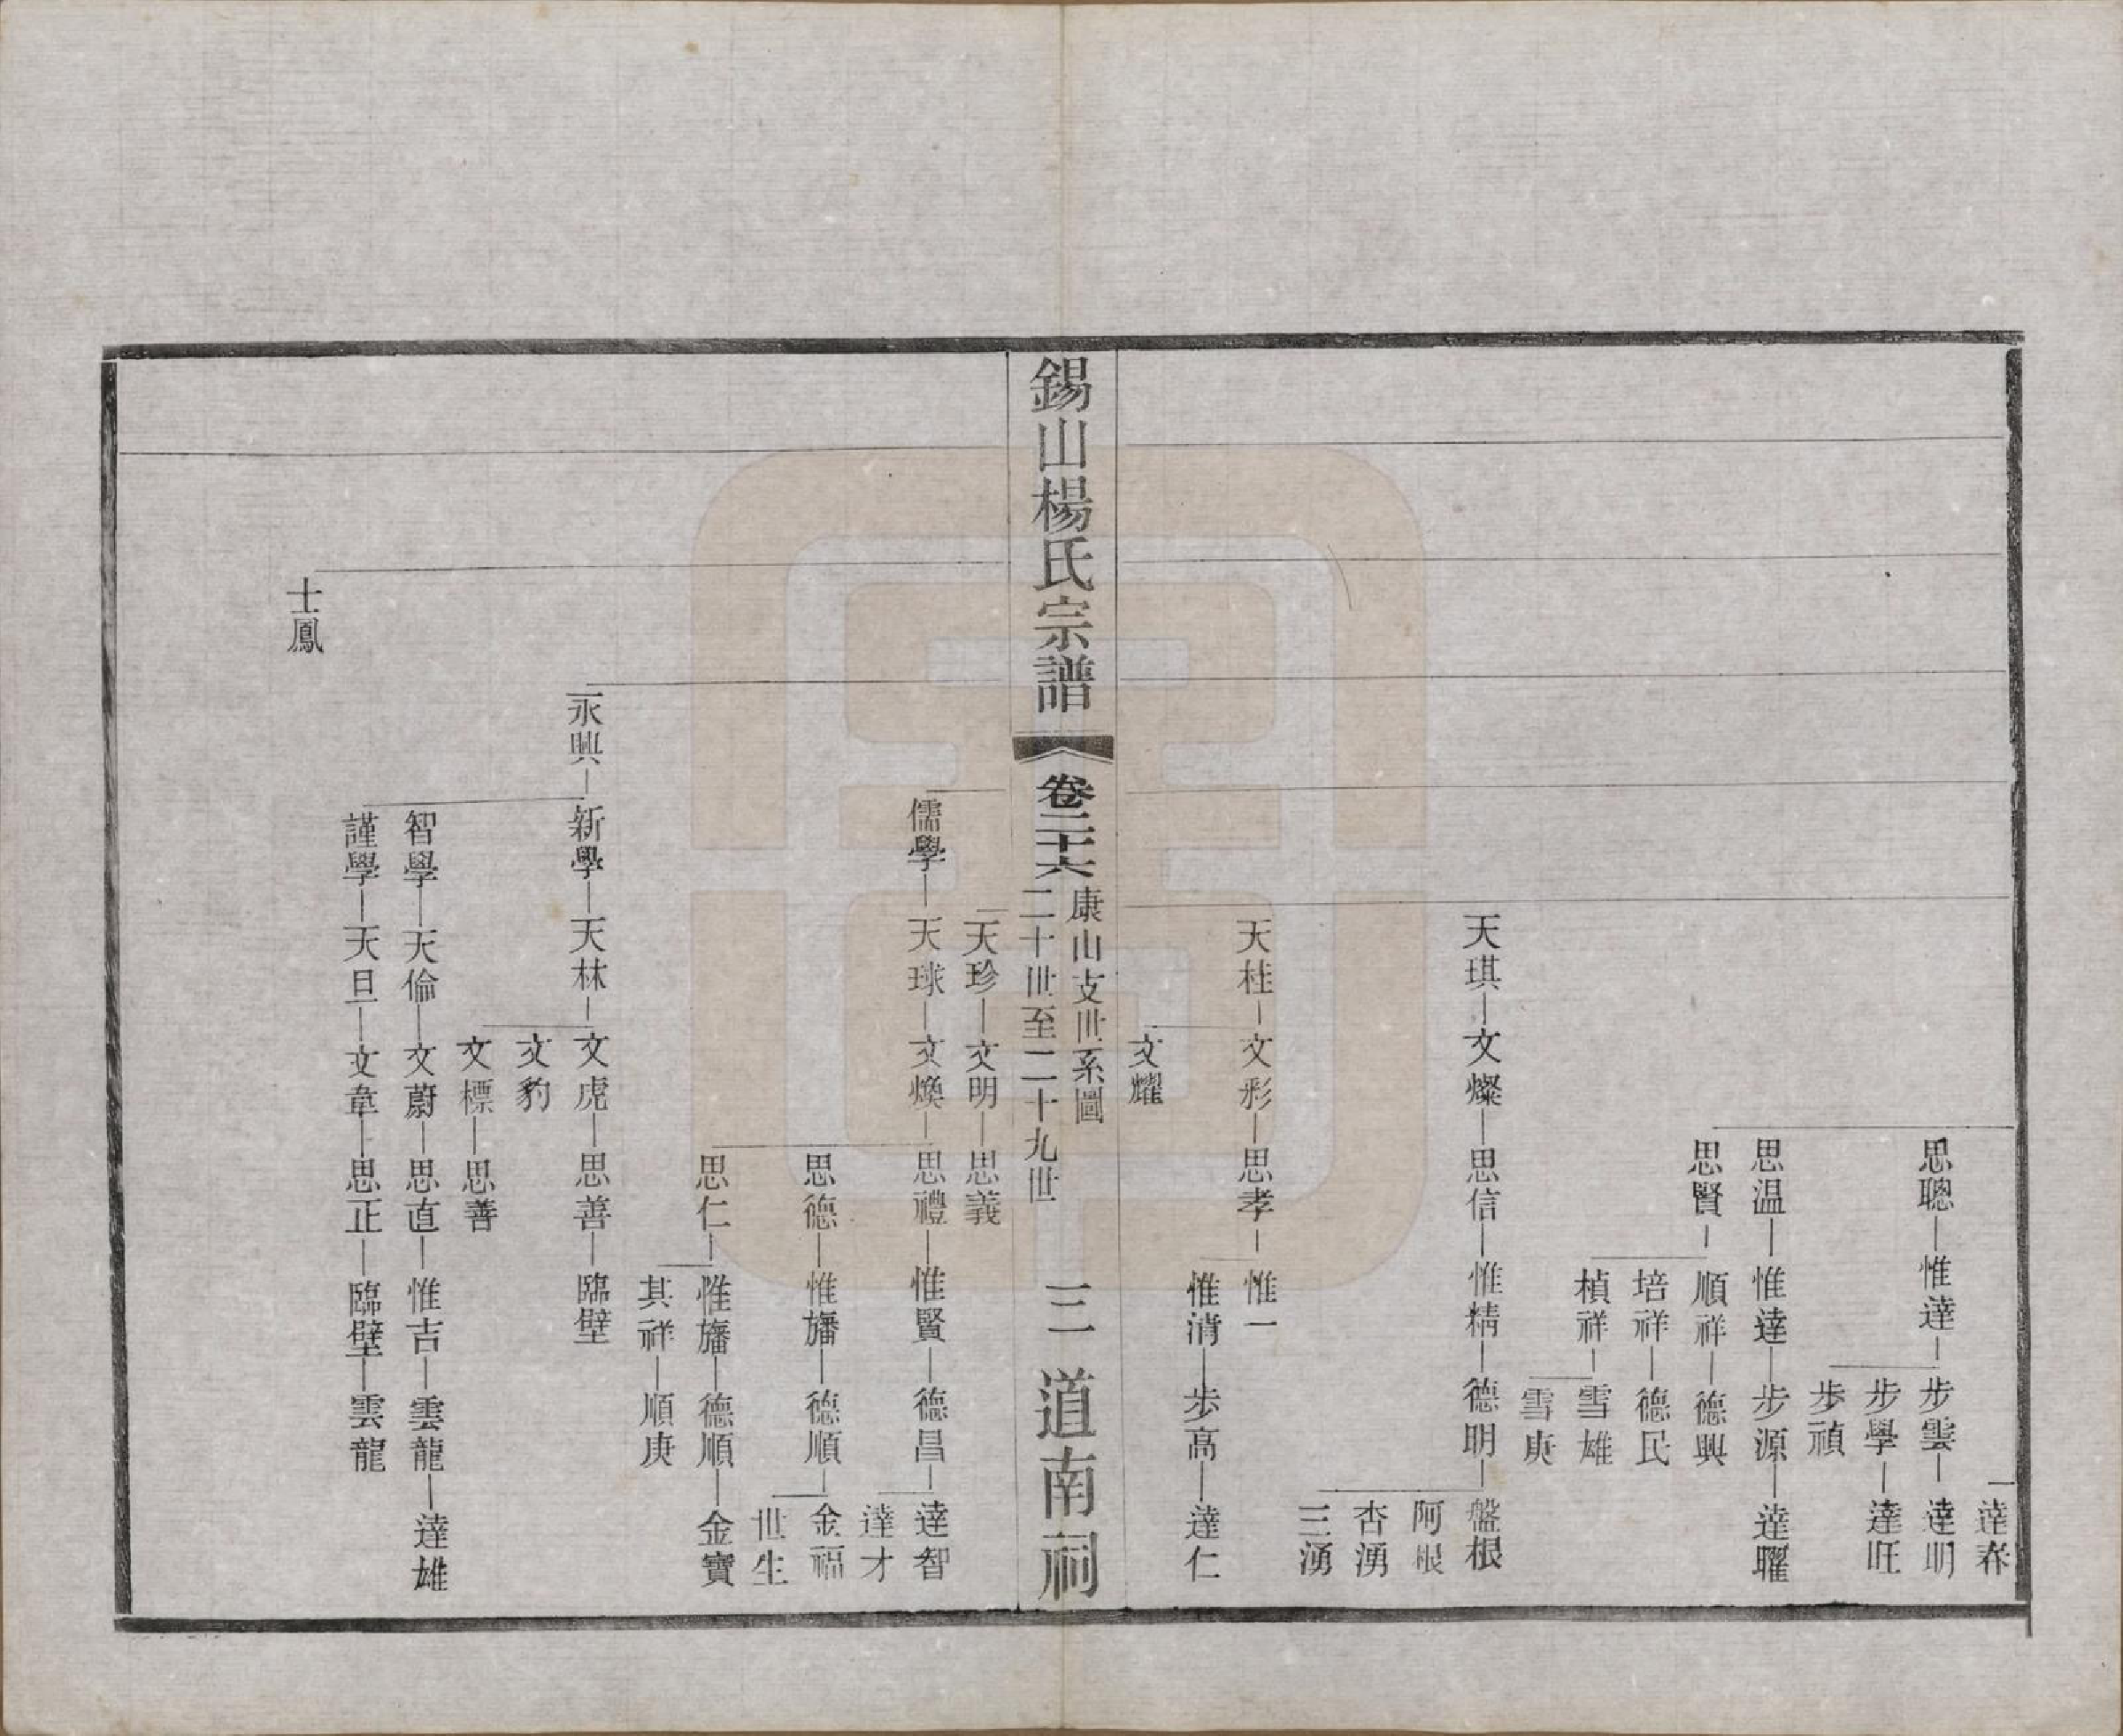 達春
思聰 惟達 步雲 達明
步學 達旺
步禎
思温 惟達 步源 達曜
思賢 順祥 德興
培祥 德民
楨祥 雪雄
雪庚
天琪 文燦 思信 惟精 德明 盤根
阿根
杏湧
三湧
天桂 文彩 思孝 惟一
惟清 步高 達仁
文耀
錫山楊氏宗譜 卷二十六 康山支世系圖
二十世至二十九世 三 道南祠
天珍 文明 思義
儒學 天球 文煥 思禮 惟賢 德昌 達智
達才
思德 惟旛 德順 金福
世生
思仁 惟旛 德順 金寶
其祥 順庚
永興 新學 天林 文虎 思善 臨壁
文豹
文標 思善
智學 天倫 文蔚 思直 惟吉 雲龍 達雄
謹學 天旦 文韋 思正 臨壁 雲龍
士鳳